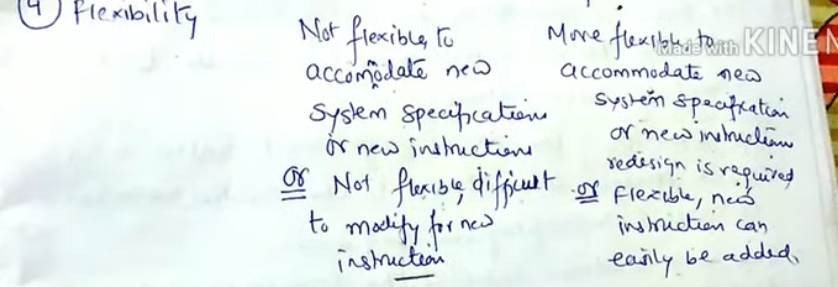 4 Flexibility
Not flexible, to
accomodate new
system specifications
or new instructions
or Not flexible, difficult
to modify for new
instruction
More flexible to
accommodate new
system specification
or new instructions
redesign is required
or Flexible, new
instruction can
easily be added.
Made with KINE